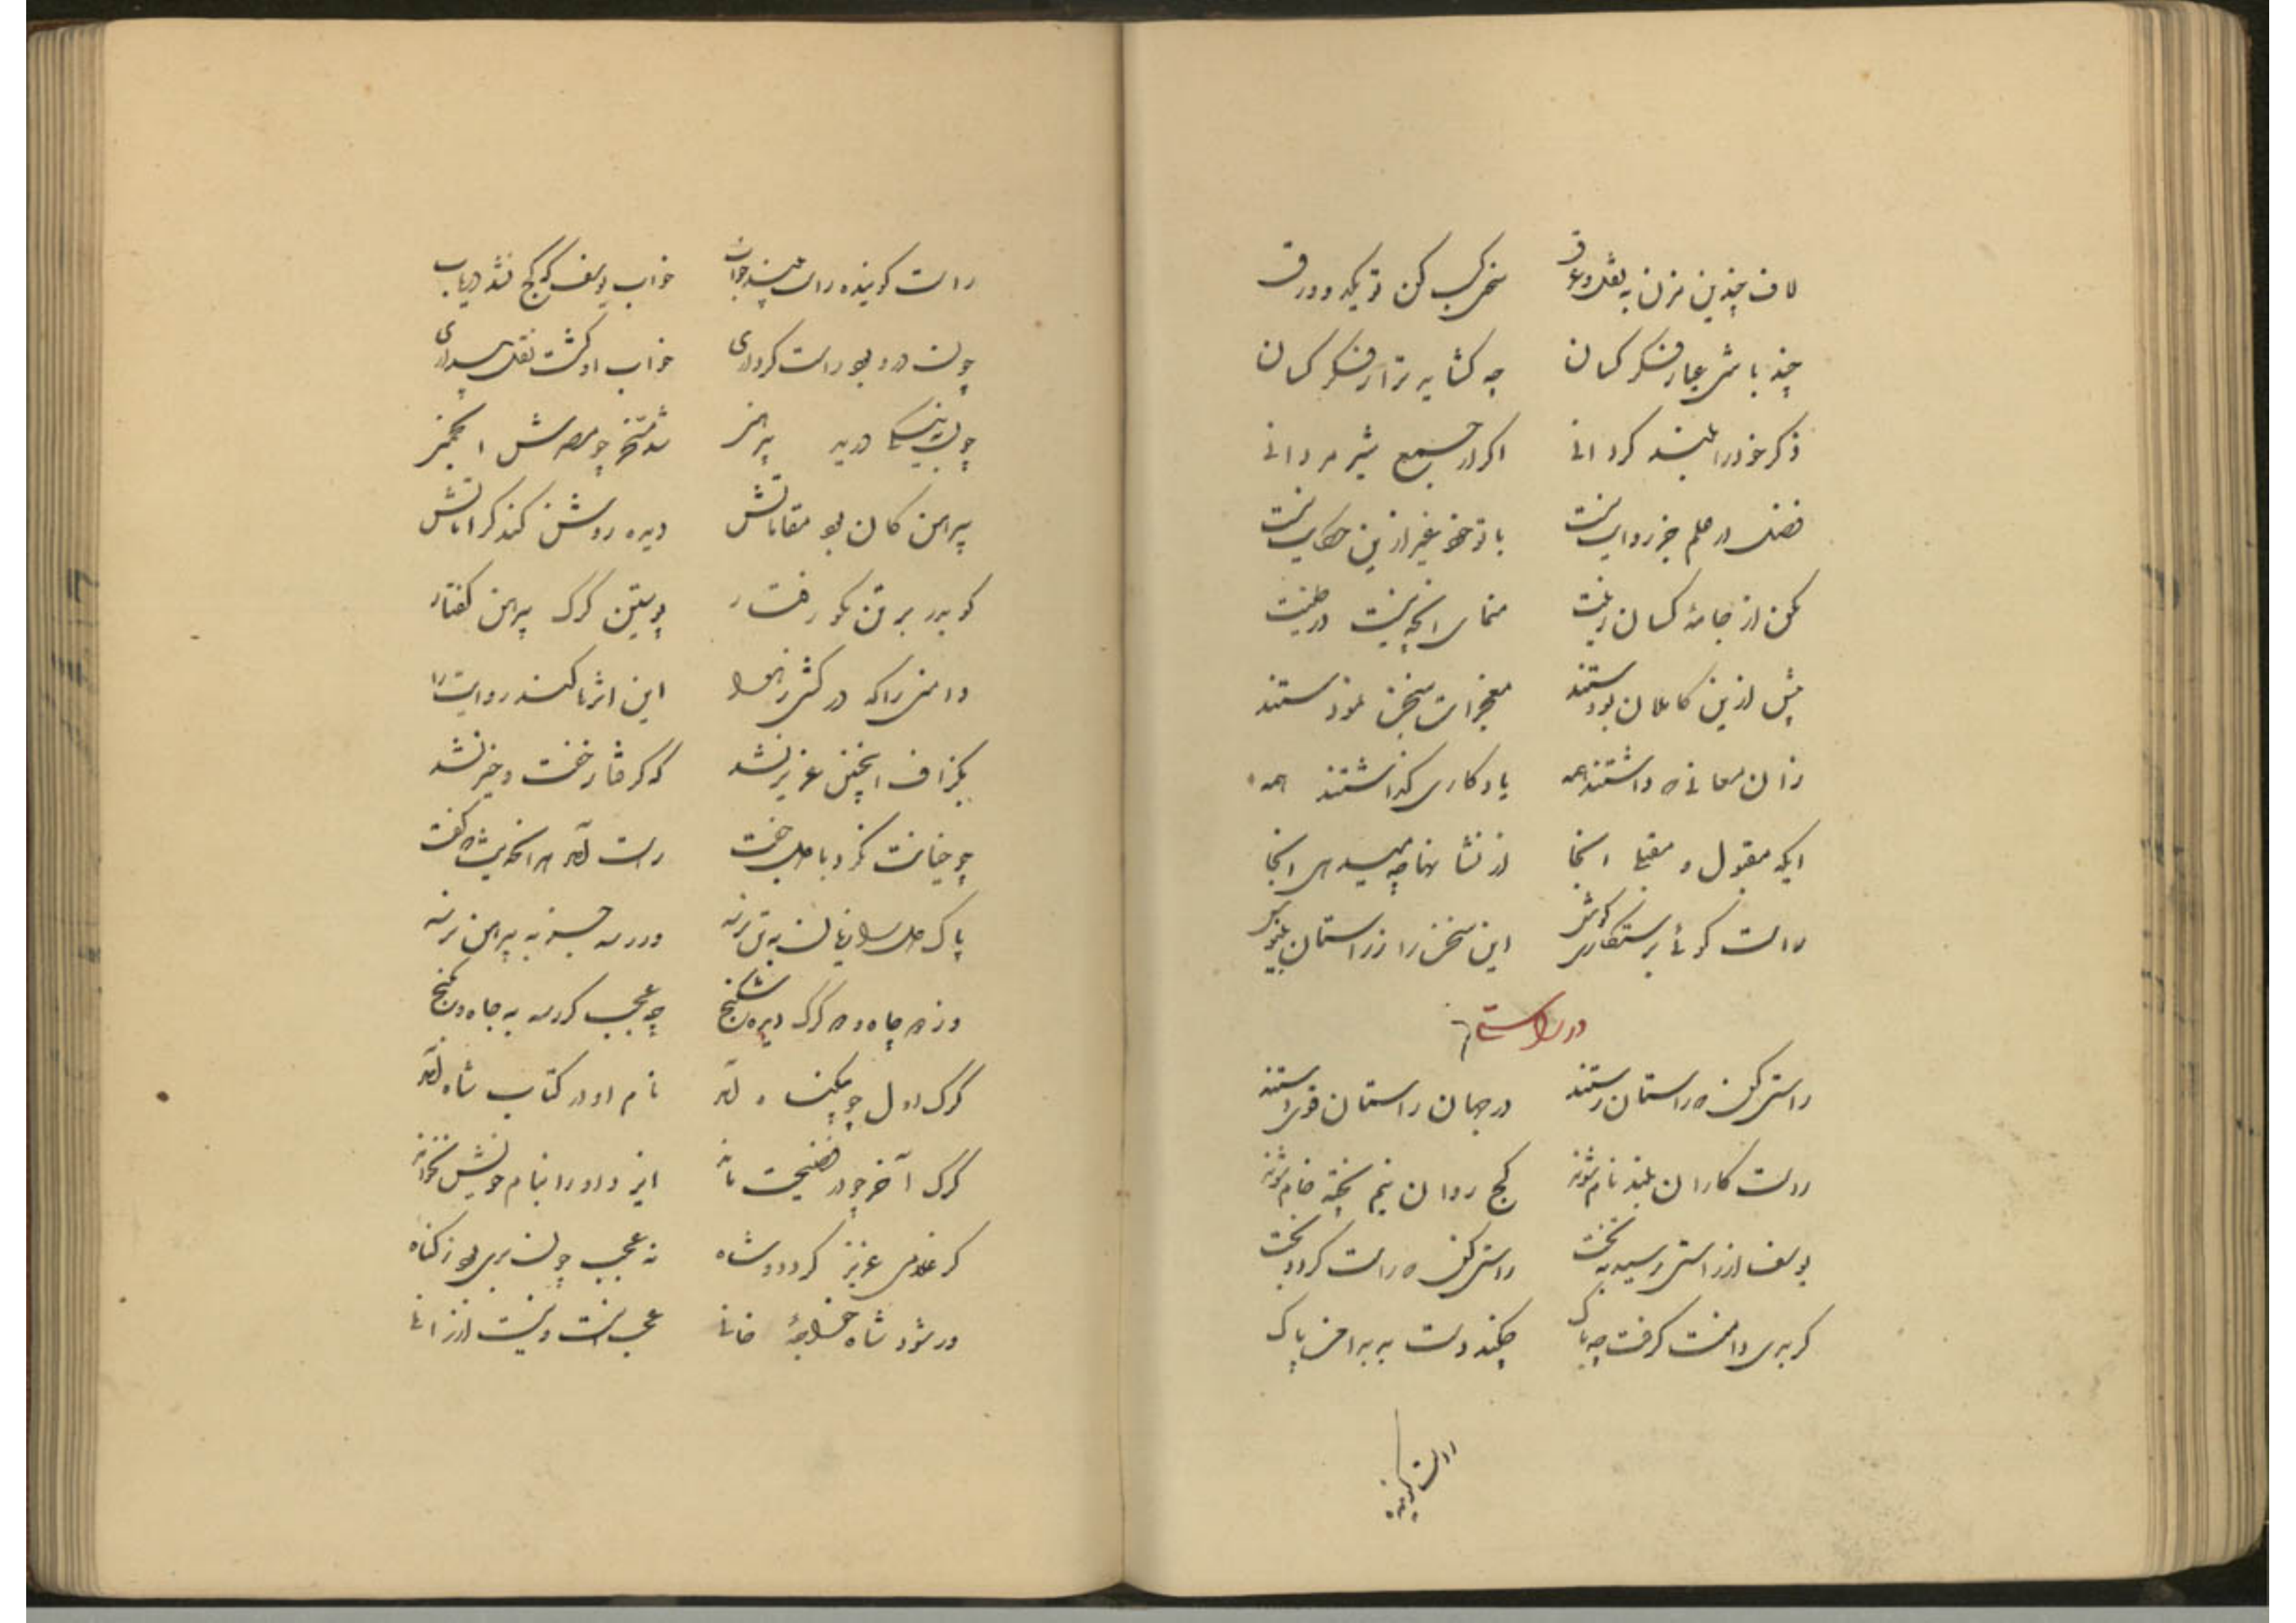 لاف چندین مزن به نقل و عرق    سخنی کسب کن تو یکدو ورق
چند باشی عیار فکر کسان    چه گشاید ترا ز فکر کسان
ذکر خود را بلند گردانی    اگر از جمع شیر مردانی
فضلت از علم جز روایت نیست    با تو خود غیر ازین حکایت نیست
مکن از جامهٔ کسان زینت    منمای آنچه نیست در طینت
پیش ازین کاملان بودستند    معجزات سخن نمودستند
زان معانی که داشتند همه    یادگاری گذاشتند همه
ایکه مقبول و مقبلی اینجا    از نشانها چه میدهی اینجا
راست گوئی برستگاری کوش    این سخن را ز راستان بنیوش
در راستی
راستی کن که راستان رستند    در جهان راستان قوی دستند
راست کاران بلند نام شوند    کج روان نیم پخته خام شوند
یوسف از راستی رسید به تخت    راستی کن که راست گردد بخت
گر بدی دامنت گرفت چه باک    چکند دست بد به دامن پاک
راست گوینده
راست گوینده راست بیند خواب    خواب یوسف که کج نشد دریاب
چون درو بود راست کرداری    خواب او گشت نقل بیداری
چون به نیکی درید پیراهن    شد مسخر چو مصرش
پیرهن کان بود مقاماتش    دیده روشن کند کراماتش
کو بدر بر تن نکو رفتار    پوستین گرگ پیرهن گفتار
دامنی را که در کشی ز هوا    این اثرها کند روایت را
بگزاف اینچنین عزیز نشد    که گرفتار خفت و خیز نشد
چو خیانت نکرد با صاحب جفت    راست آمد هر آنچه گفت
پاک بتن برند    ور رسد به پیرهن برند
وز چاه و گرگ دیده شکنج    چه عجب گر رسد به جاه و گنج
گرگ اول چو بیگناه آمد    نام او در کتاب شاه آمد
گرگ آخر چو در فضیحت ماند    ایزد او را بنام خویش نخواند
گر غلامی عزیز گردد و شاه    نه عجب چون بری بود ز گناه
ور شود شاه خواجهٔ خانی    عجب است و نیست ارزانی